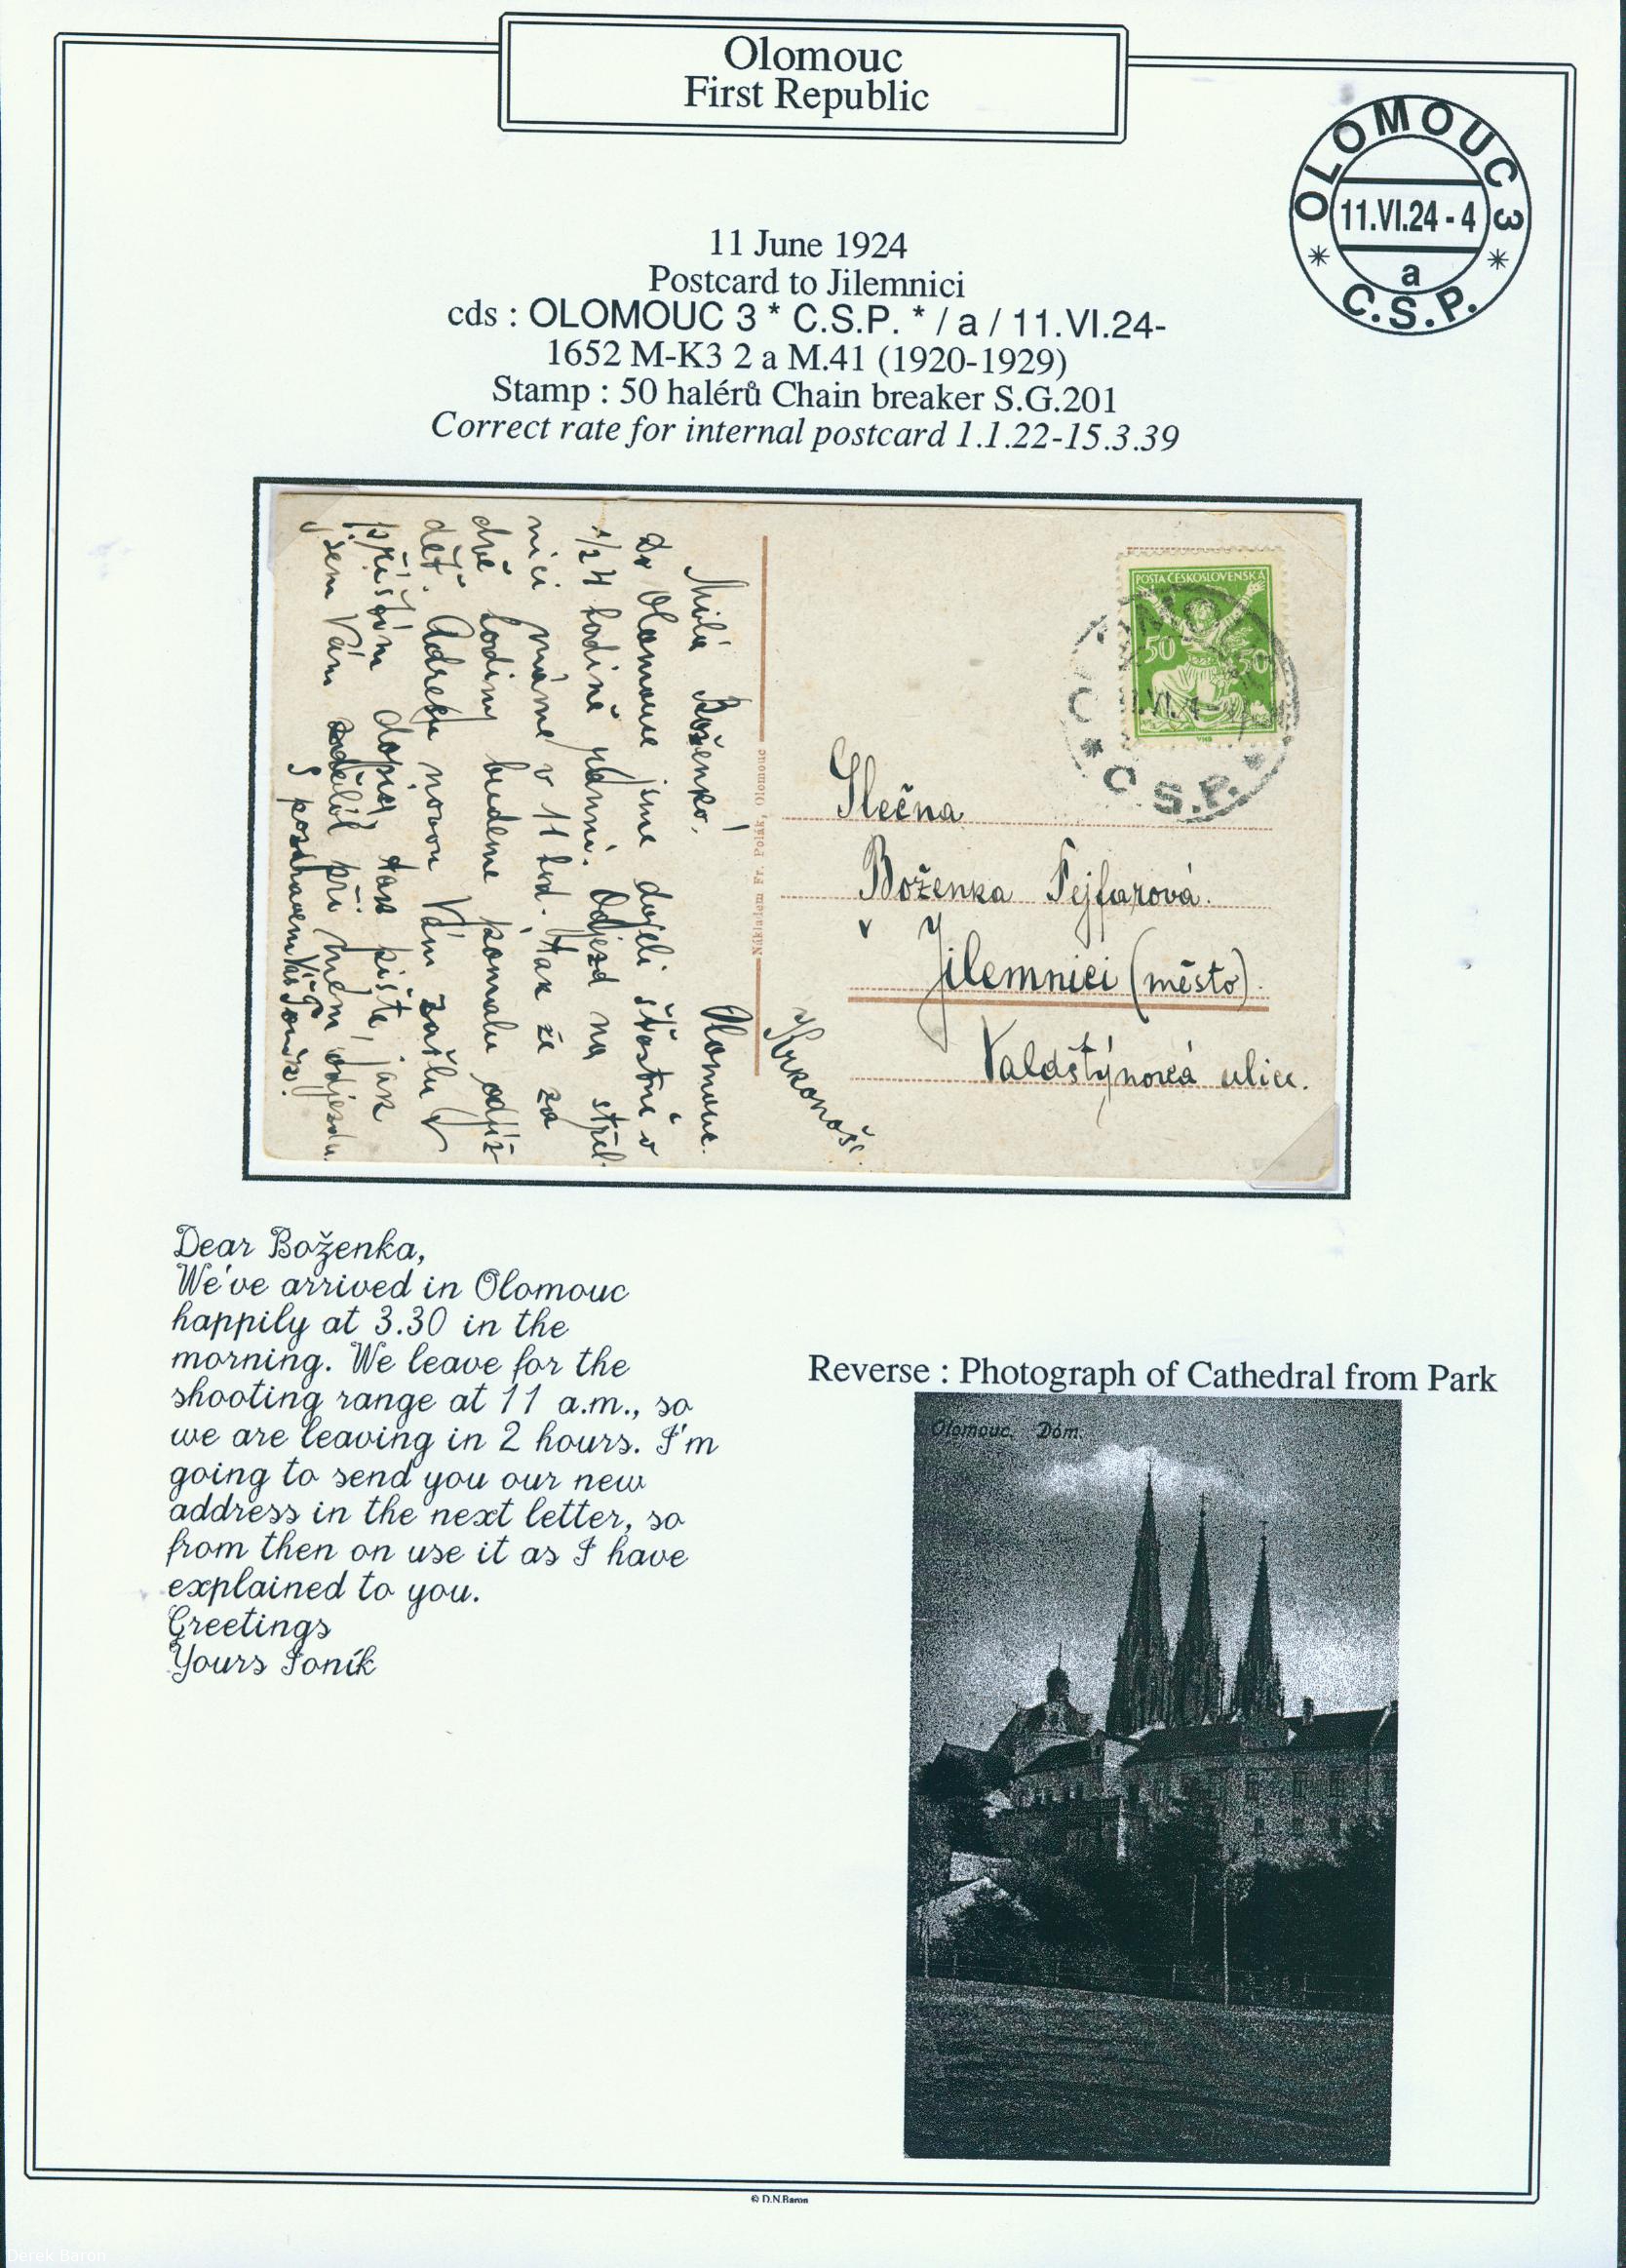 Olomouc
First Republic
OLOMOUC 3
11.VI.24 - 4
* a *
C.S.P.
11 June 1924
Postcard to Jilemnici
cds : OLOMOUC 3 * C.S.P. * / a / 11.VI.24-
1652 M-K3 2 a M.41 (1920-1929)
Stamp : 50 halérů Chain breaker S.G.201
Correct rate for internal postcard 1.1.22-15.3.39
POŠTA ČESKOSLOVENSKÁ
50 50
* C.S.P. *
Slečna
Boženka Fejfarová.
v Jilemnici (město).
Valdštýnová ulice.
Krkonoše.
Nákladem Fr. Polák, Olomouc
Olomouc.
Milá Boženko,
Do Olomouce jsme dojeli šťastně v
1/24 hodině ranní. Odjezd na střel-
nici máme v 11 hod. tak že za
dvě hodiny budeme pomalu odjíž-
děť. Adresu novou Vám zašlu v
příštím dopise tak pište, jak
jsem Vám sdělil při mém odjezdu.
S pozdravem Váš Toník.
Dear Boženka,
We've arrived in Olomouc
happily at 3.30 in the
morning. We leave for the
shooting range at 11 a.m., so
we are leaving in 2 hours. I'm
going to send you our new
address in the next letter, so
from then on use it as I have
explained to you.
Greetings
Yours Toník
Reverse : Photograph of Cathedral from Park
Olomouc. Dóm.
© D.N.Baron
Derek Baron